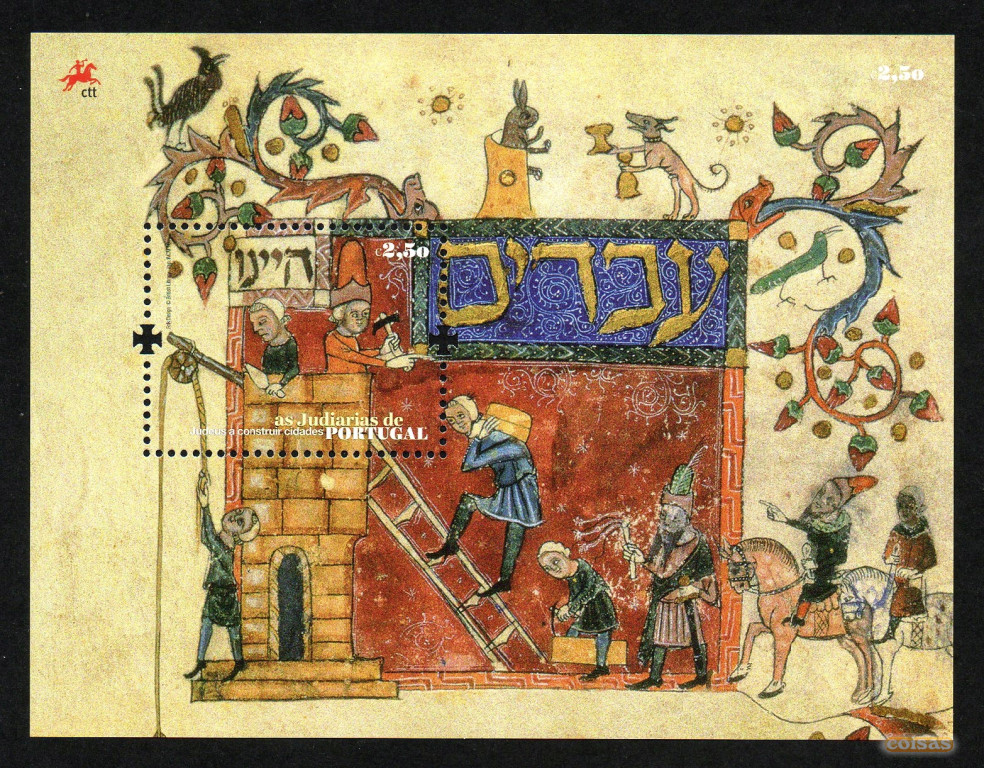 ctt
€2,50
€2,50
עבדים
היינו
as Judiarias de
Judeus a construir cidades PORTUGAL
coisas